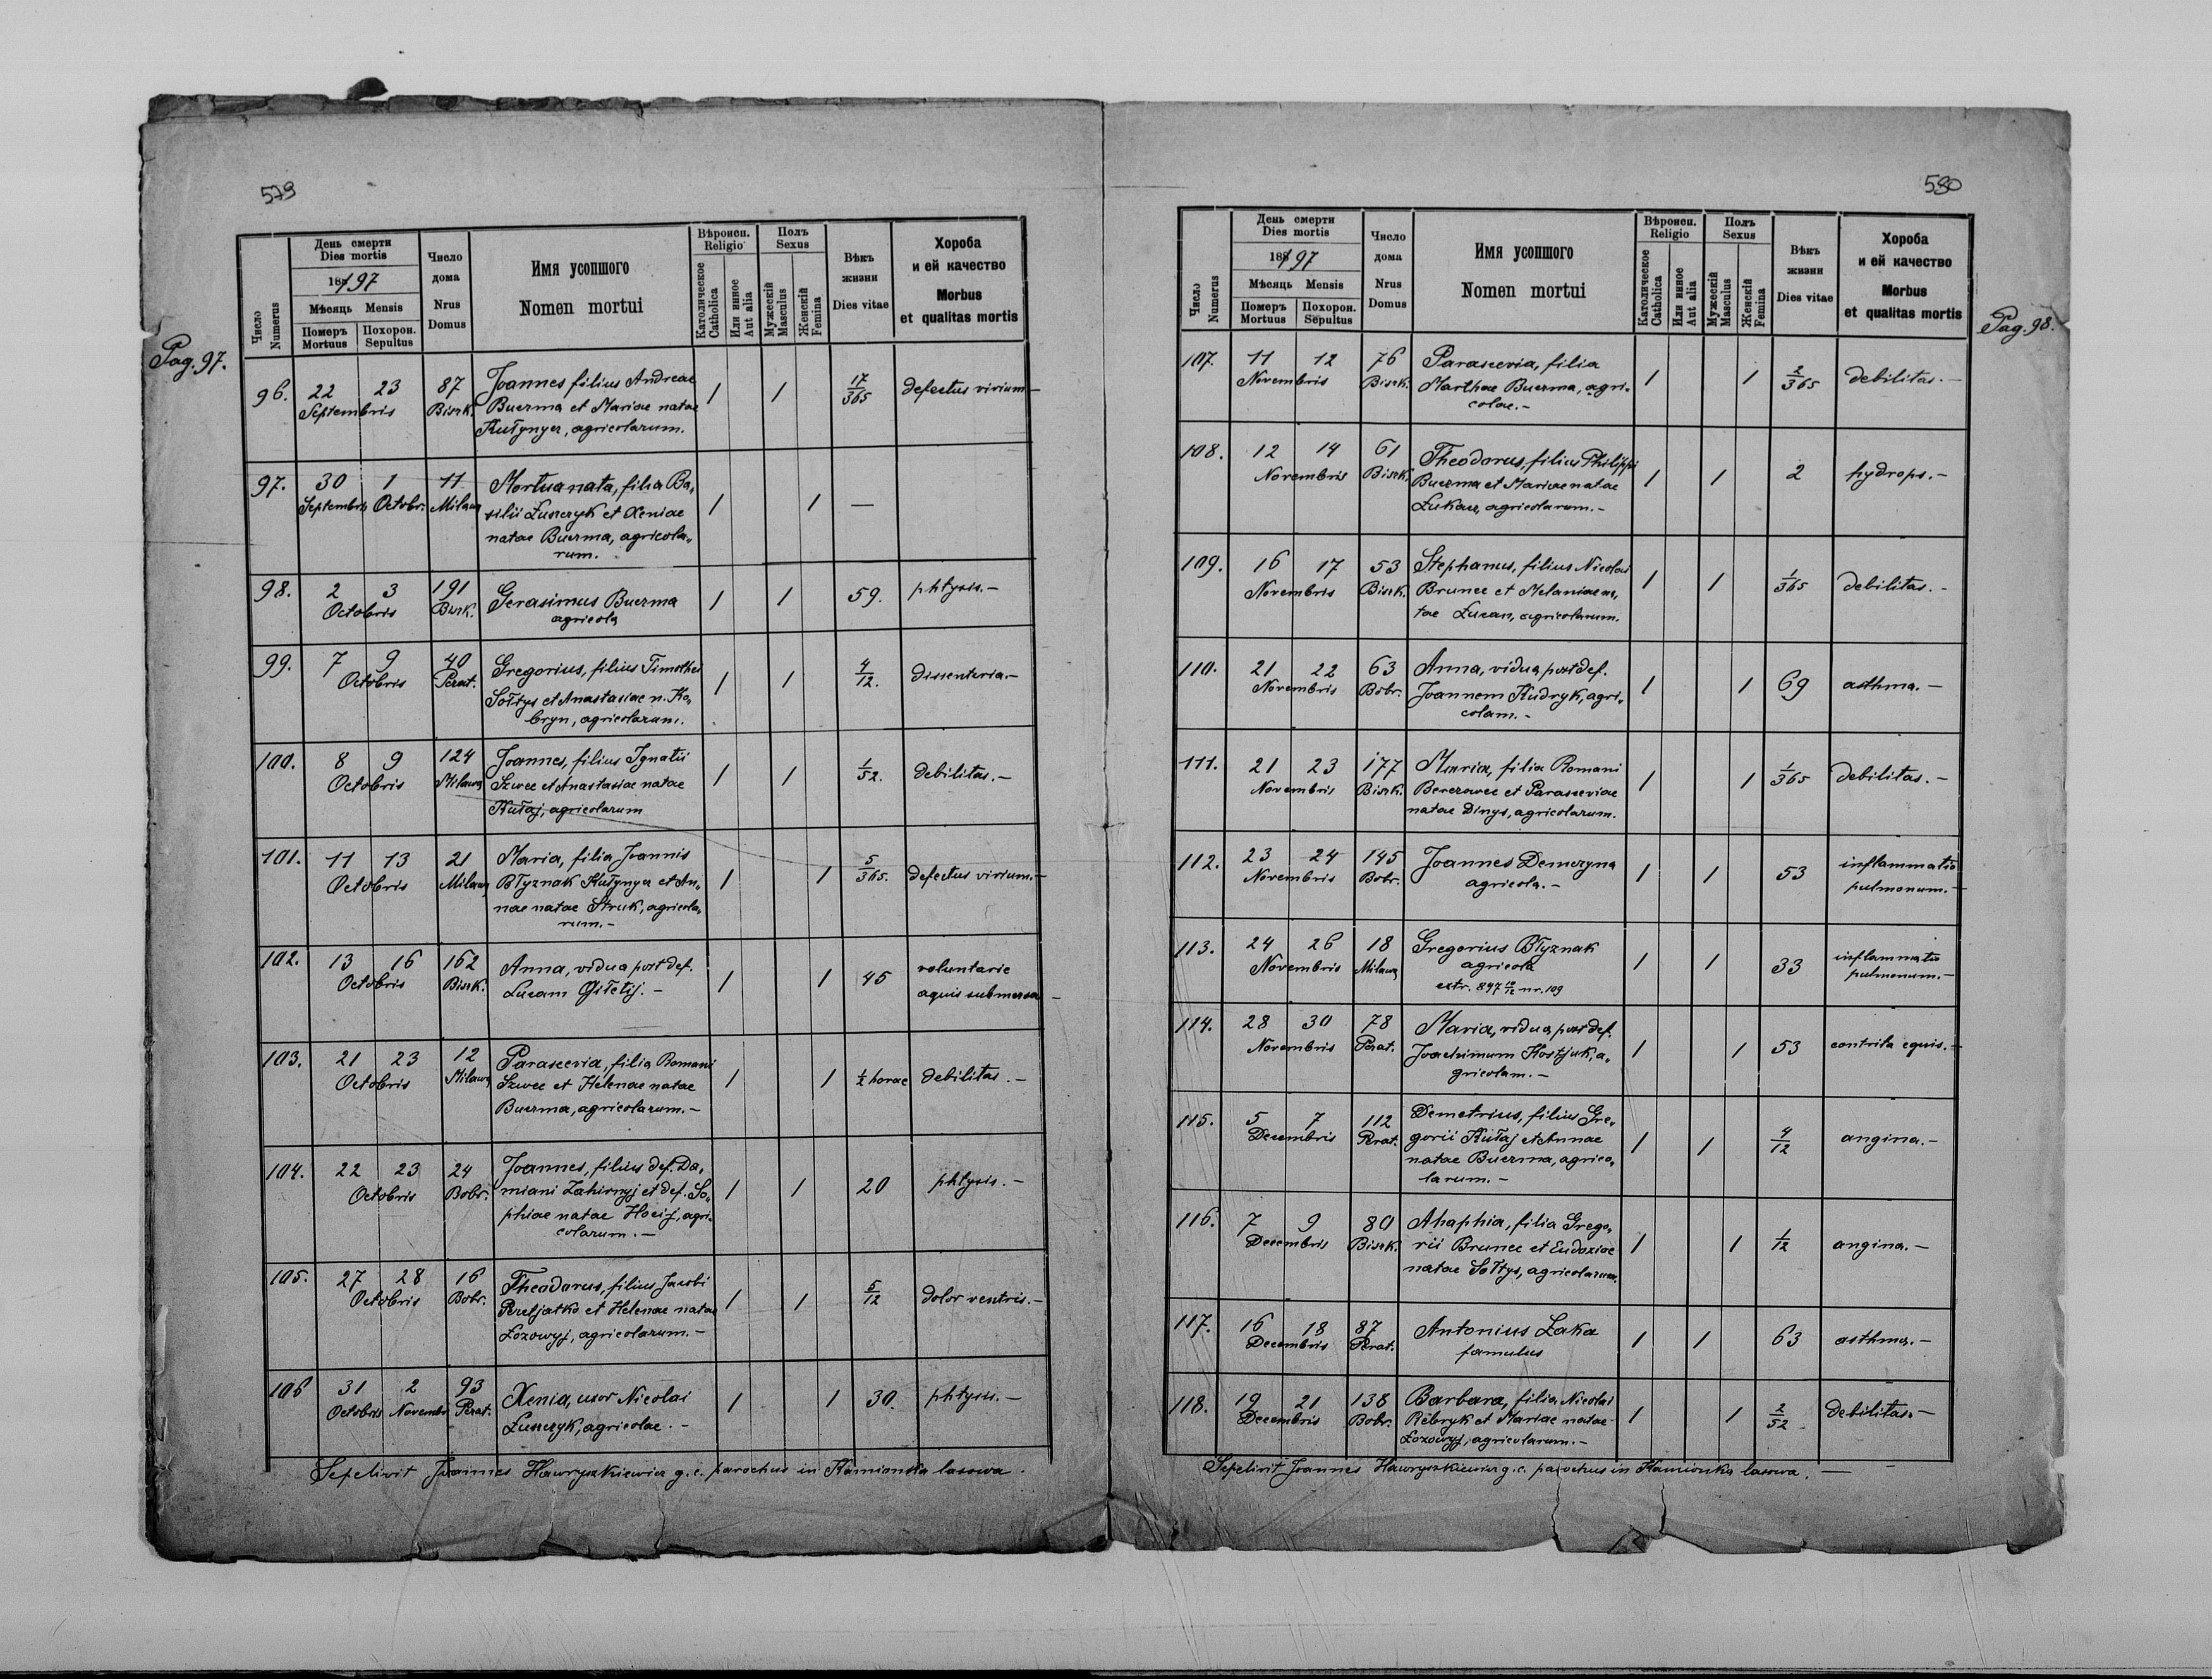 579
Pag. 97.
Число Numerus
День смерти
Dies mortis
1897
Мѣсяць Mensis
Померъ Mortuus
Похорон. Sepultus
Число дома
Nrus Domus
Имя усопшого
Nomen mortui
Вѣроисп.
Religio
Католическое Catholica
Или инное Aut alia
Полъ
Sexus
Мужескій Masculus
Женскій Femina
Вѣкъ жизни
Dies vitae
Хороба
и ей качество
Morbus
et qualitas mortis
96. 22 23 87 Joannes filius Andreae 1 1 17/365 defectus virium-
Septembris Bisrk. Buerma et Mariae natae
Kułynyer, agricolarum.
97. 30 1 11 Mortua nata, filia Ba„ 1 1 —
Septembris Octobr. Milawa silii Łuserzyk et Xeniae
natae Buerma, agricola„
rum.
98. 2 3 191 Gerasimus Buerma 1 1 59. phtysis.-
Octobris Bisrk. agricola
99. 7 9 40 Gregorius, filius Timothei 1 1 4/12. dissenteria.-
Octobris Perat. Sołtys et Anastasiae n. Ko„
bryn, agricolarum.
100. 8 9 124 Joannes, filius Ignatii 1 1 1/52. debilitas.-
Octobris Milawa Szwec et Anastasiae natae
Kułaj, agricolarum
101. 11 13 21 Maria, filia Joannis 1 1 5/365. defectus virium.-
Octobris Milawa Błyznak Kułynyer et An„
nae natae Struk, agricola„
rum.-
102. 13 16 162 Anna, vidua post def. 1 1 45 voluntarie
Octobris Bisrk. Lucam .- aquis submersa -
103. 21 23 12 Parascevia, filia Romani 1 1 1/2 horae debilitas.-
Octobris Milawa Szwec et Helenae natae
Buerma, agricolarum.-
104. 22 23 24 Joannes, filius def. Da„ 1 1 20 phtysis.-
Octobris Bobr. miani Zahirnyj et def. So„
phiae natae Hocij, agri„
colarum.-
105. 27 28 16 Theodorus, filius Jacobi 1 1 5/12 dolor ventris.-
Octobris Bobr. Pereljatko et Helenae natae
Łozowyj, agricolarum.-
106 31 2 93 Xenia, uxor Nicolai 1 1 30. phtysis.-
Octobris Novembr. Perat. Łuserzyk, agricolae.-
Sepelivit Joannes Hawryszkiewicz g. c. parochus in Kamionka lasowa.
580
Pag. 98.
Число Numerus
День смерти
Dies mortis
1897
Мѣсяць Mensis
Померъ Mortuus
Похорон. Sepultus
Число дома
Nrus Domus
Имя усопшого
Nomen mortui
Вѣроисп.
Religio
Католическое Catholica
Или инное Aut alia
Полъ
Sexus
Мужескій Masculus
Женскій Femina
Вѣкъ жизни
Dies vitae
Хороба
и ей качество
Morbus
et qualitas mortis
107. 11 12 76 Parascevia, filia 1 1 2/365 debilitas.-
Novembris Bisrk. Marthae Buerma, agri„
colae.-
108. 12 14 61 Theodorus, filius Philippi 1 1 2 hydrops.-
Novembris Bisrk. Buerma et Mariae natae
Łukacz, agricolarum.-
109. 16 17 53 Stephanus, filius Nicolai 1 1 1/365 debilitas.-
Novembris Bisrk. Brunec et Melaniae na„
tae Łucan, agricolarum.
110. 21 22 63 Anna, vidua post def. 1 1 69 asthma.-
Novembris Bobr. Joannem Kudryk, agri„
colam.-
111. 21 23 177 Maria, filia Romani 1 1 1/365 debilitas.-
Novembris Bisrk. Berezowec et Parasceviae
natae Dinys, agricolarum.
112. 23 24 145 Joannes Demczyna 1 1 53 inflammatio
Novembris Bobr. agricola.- pulmonum.-
113. 24 26 18 Gregorius Błyznak 1 1 33 inflammatio
Novembris Milawa agricola pulmonum.-
extr. 897 nr. 109
114. 28 30 78 Maria, vidua post def. 1 1 53 contrita equis.-
Novembris Perat. Joachimum Kostjuk, a„
gricolam.-
115. 5 7 112 Demetrius, filius Gre„ 1 1 4/12 angina.-
Decembris Perat. gorii Kułaj et Annae
natae Buerma, agrico„
larum.-
116. 7 9 80 Ahaphia, filia Grego„ 1 1 1/12 angina.-
Decembris Bisrk. rii Brunec et Eudoxiae
natae Sołtys, agricolarum.
117. 16 18 87 Antonius Zaka 1 1 63 asthma.-
Decembris Perat. famulus
118. 19 21 138 Barbara, filia Nicolai 1 1 2/52 debilitas.-
Decembris Bobr. Rebryk et Mariae natae
Łozowyj, agricolarum.-
Sepelivit Joannes Hawryszkiewicz g. c. parochus in Kamionka lasowa.—